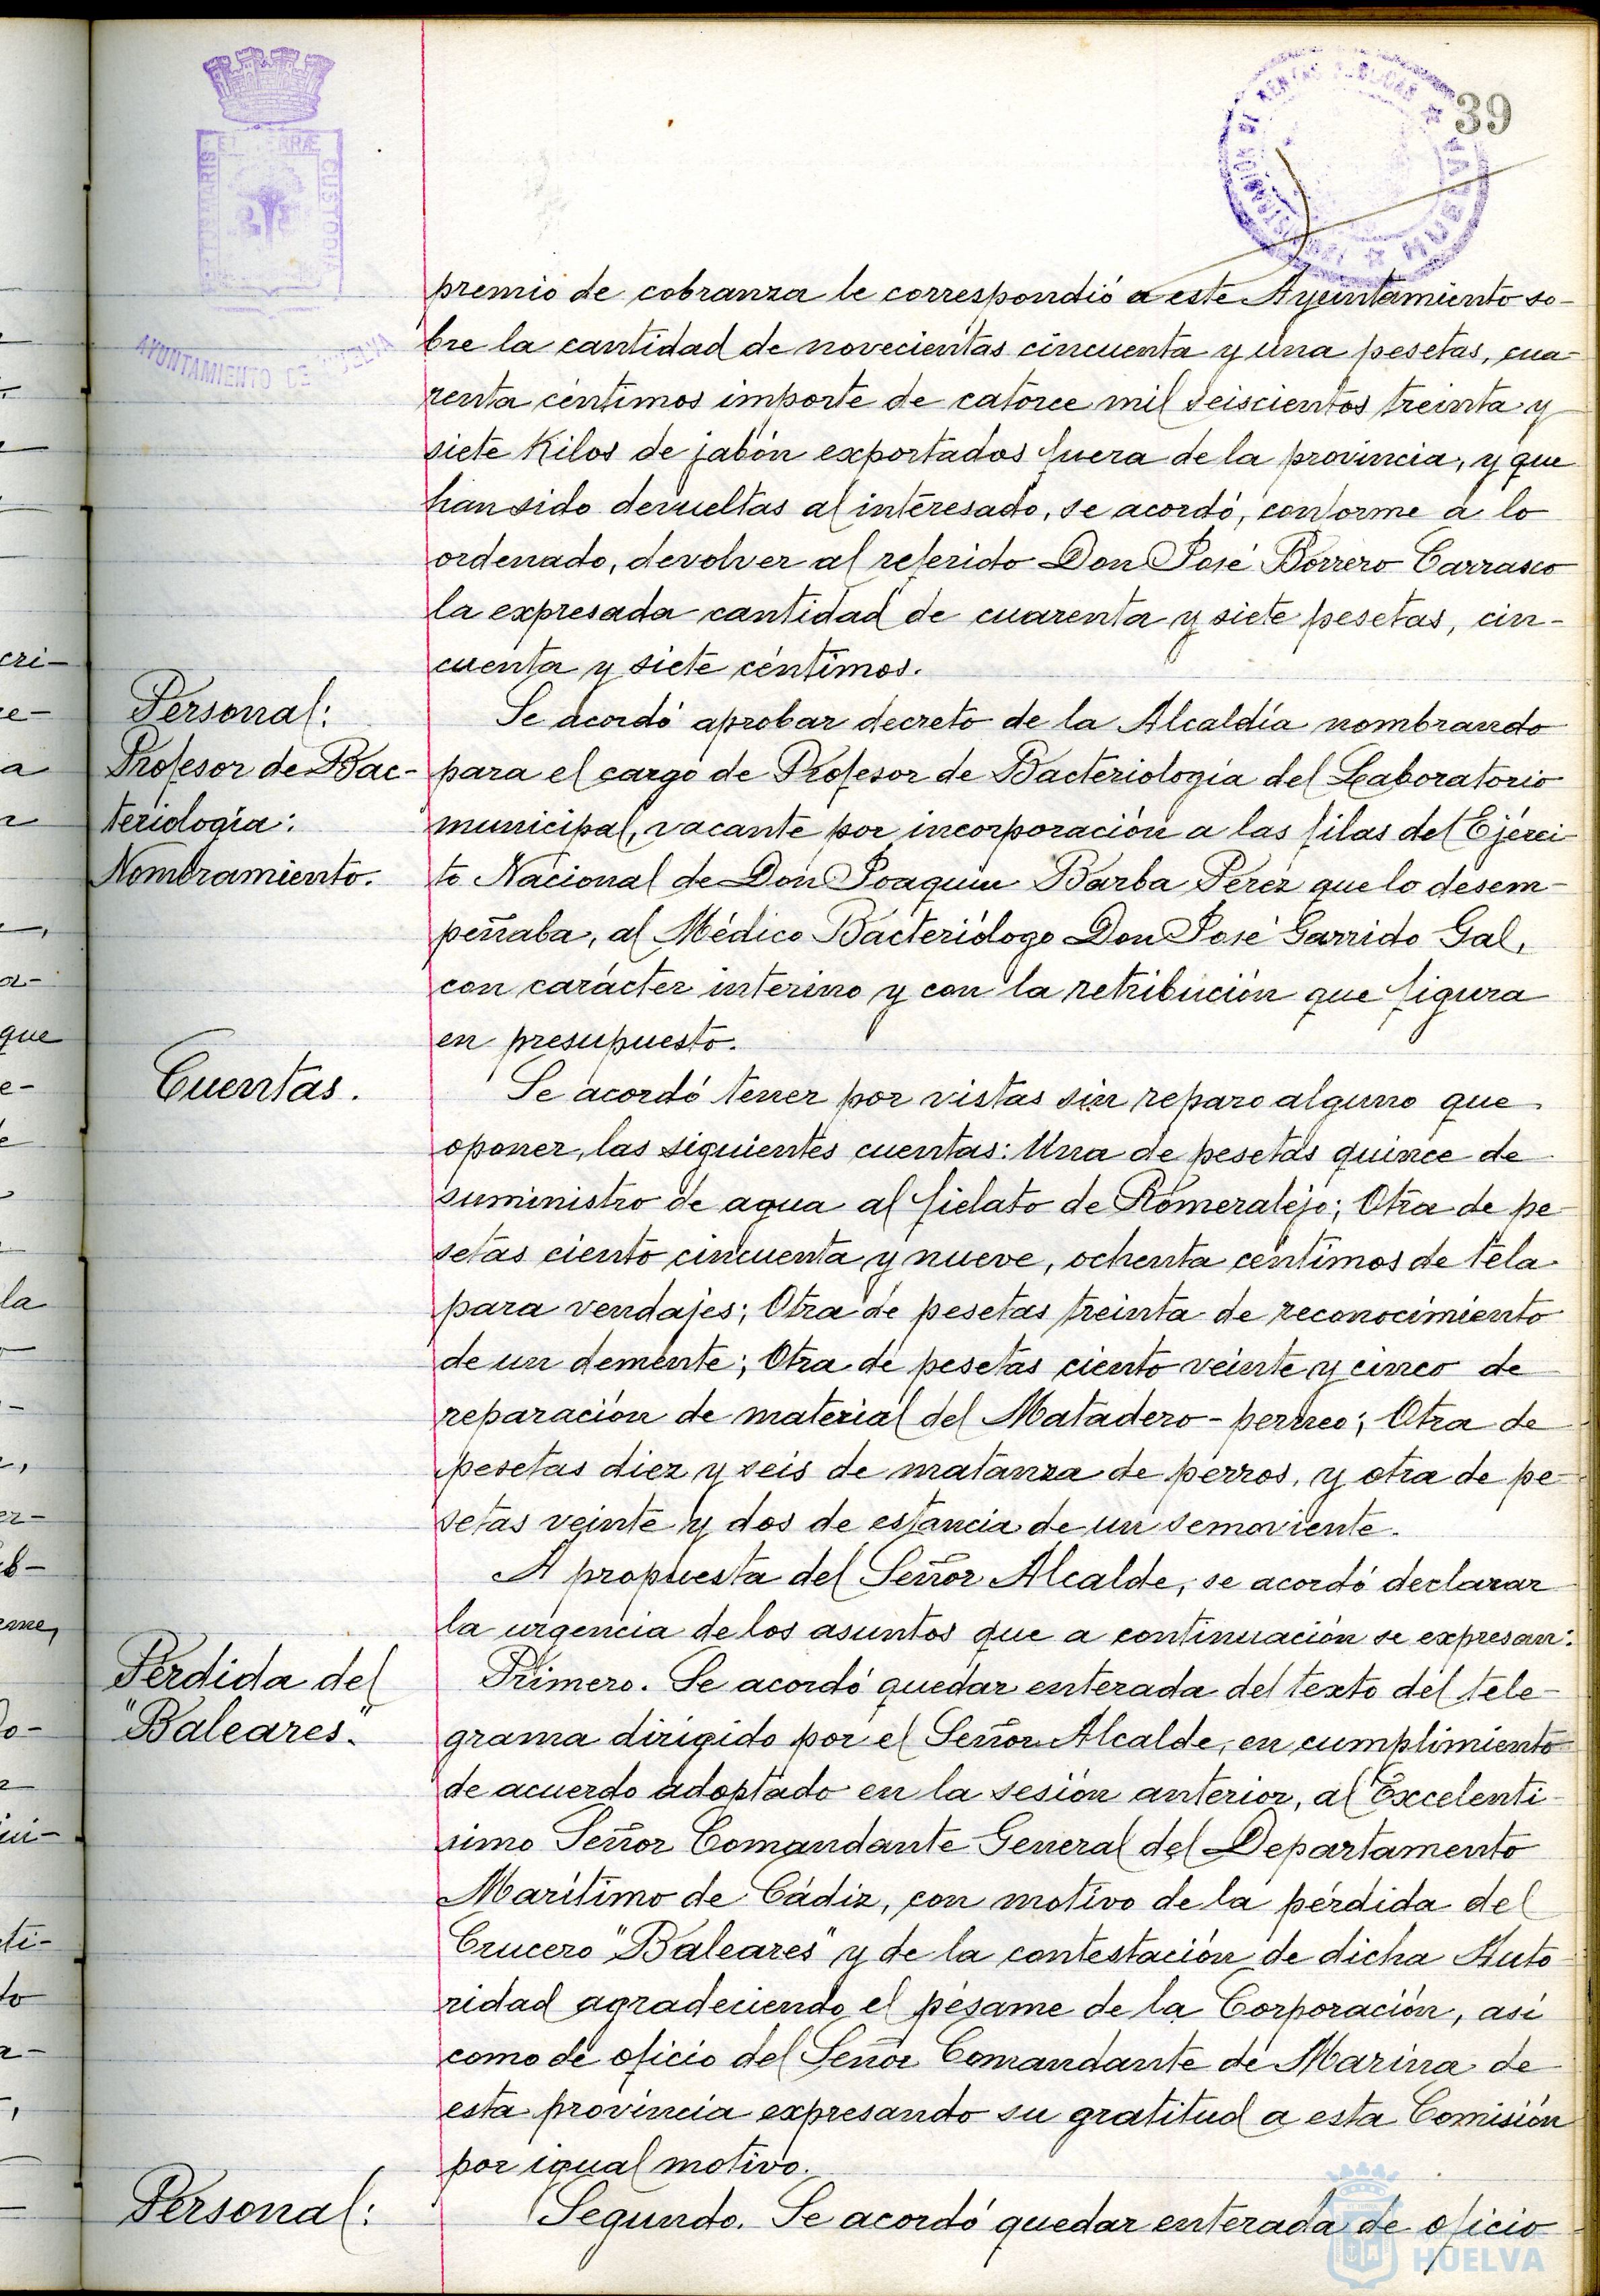 39
premio de cobranza le correspondió a este Ayuntamiento so-
bre la cantidad de novecientas cincuenta y una pesetas, cua-
renta céntimos importe de catorce mil seiscientos treinta y
siete Kilos de jabón exportados fuera de la provincia, y que
han sido devueltas al interesado, se acordó, conforme a lo
ordenado, devolver al referido Don José Borrero Carrasco
la expresada cantidad de cuarenta y siete pesetas, cin-
cuenta y siete céntimos.
Personal:
Profesor de Bac-
teriología:
Nombramiento.
Se acordó aprobar decreto de la Alcaldía nombrando
para el cargo de Profesor de Bacteriología del Laboratorio
municipal, vacante por incorporación a las filas del Ejérci-
to Nacional de Don Joaquín Barba Pérez que lo desem-
peñaba, al Médico Bacteriólogo Don José Garrido Gal,
con carácter interino y con la retribución que figura
en presupuesto.
Cuentas.
Se acordó tener por vistas sin reparo alguno que
oponer, las siguientes cuentas: Una de pesetas quince de
suministro de agua al fielato de Romeralejo; Otra de pe-
setas ciento cincuenta y nueve, ochenta céntimos de tela
para vendajes; Otra de pesetas treinta de reconocimiento
de un demente; Otra de pesetas ciento veinte y cinco de
reparación de material del Matadero-perneo; Otra de
pesetas diez y seis de matanza de perros, y otra de pe-
setas veinte y dos de estancia de un semoviente.
A propuesta del Señor Alcalde, se acordó declarar
la urgencia de los asuntos que a continuación se expresan:
Pérdida del
"Baleares".
Primero. Se acordó quedar enterada del texto del tele-
grama dirigido por el Señor Alcalde, en cumplimiento
de acuerdo adoptado en la sesión anterior, al Excelentí-
simo Señor Comandante General del Departamento
Marítimo de Cádiz, con motivo de la pérdida del
Crucero "Baleares" y de la contestación de dicha Auto-
ridad agradeciendo el pésame de la Corporación, así
como de oficio del Señor Comandante de Marina de
esta provincia expresando su gratitud a esta Comisión
por igual motivo.
Personal:
Segundo. Se acordó quedar enterada de oficio
AYUNTAMIENTO DE HUELVA
HUELVA